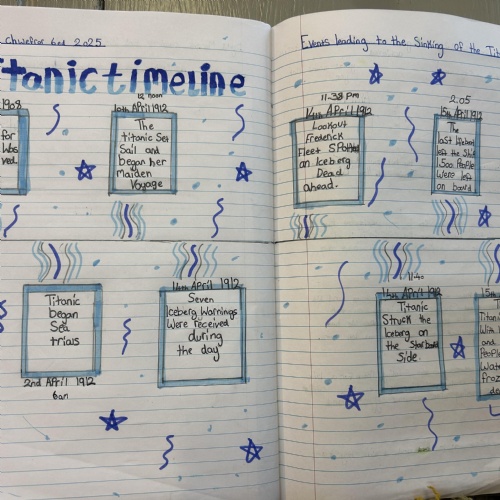 chwefror 6ed 2025
Titanic timeline
1908
for
Was
ved.
12 noon
10th April 1912
The
titanic Set
Sail and
began her
Maiden
Voyage
Titanic
began
Sea
trials
2nd April 1912
6am
14th April 1912
Seven
Iceberg Warnings
Were received
during
the day
Events leading to the Sinking of the Tit
11-38 pm
14th April 1912
Lookout
Frederick
Fleet Spotted
an Iceberg
Dead
ahead.
2.05
15th April 1912
The
last lifeboat
left the Ship
1500 People
Were left
on board
11-40
14th April 1912
Titanic
Struck the
Iceberg on
the Starboard
Side
15th
Titanic
With
and
People
Wate
froz